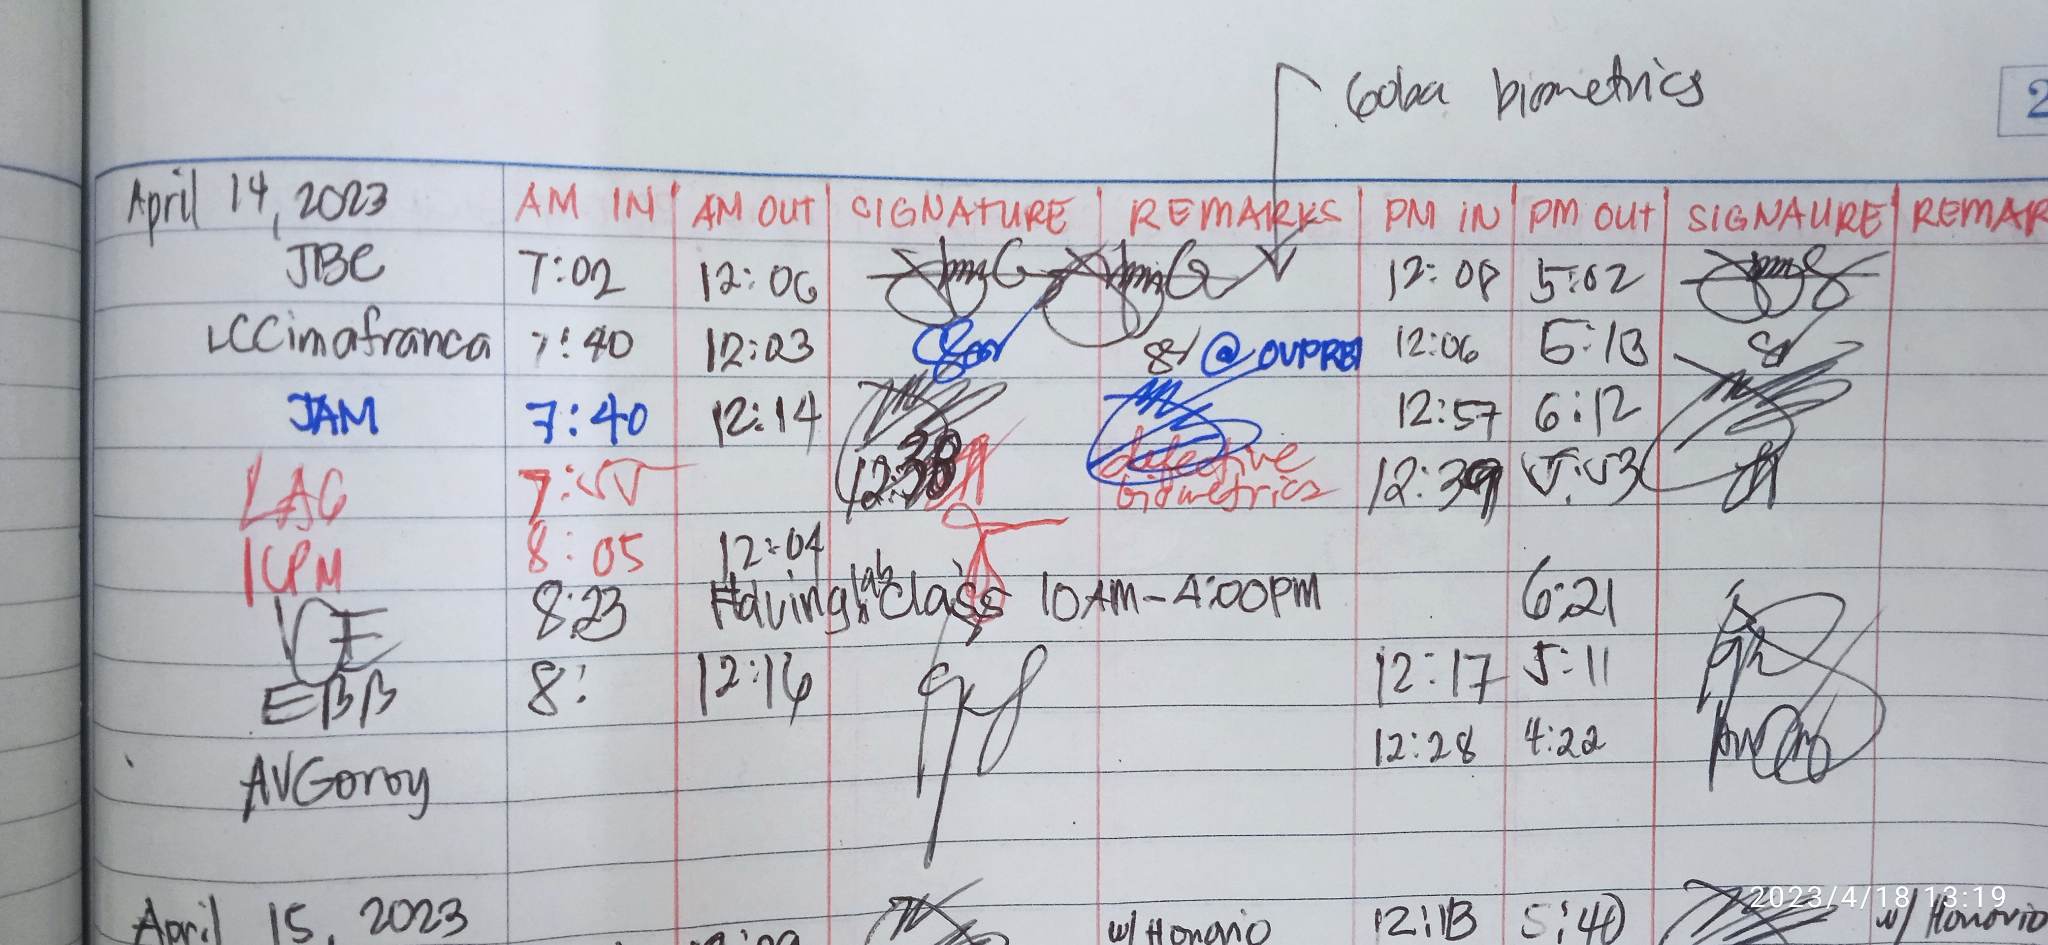 biometrics
2
April 14, 2023 AM IN AM OUT SIGNATURE REMARKS PM IN PM OUT SIGNAURE REMAR
JBC 7:02 12:06 12:08 5:02
LCCimafranca 7:40 12:03 @ OVPREI 12:06 5:13
JAM 7:40 12:14 12:57 6:12
LAG 7:55 12:38 defective biometrics 12:39 5:53
ICPM 8:05 12:04
8:23 Having lab class 10AM-4:00PM 6:21
EBB 8: 12:16 12:17 5:11
AVGoroy 12:28 4:22
April 15, 2023 w/ Honorio 12:13 5:40 w/ Honorio
2023/4/18 13:19